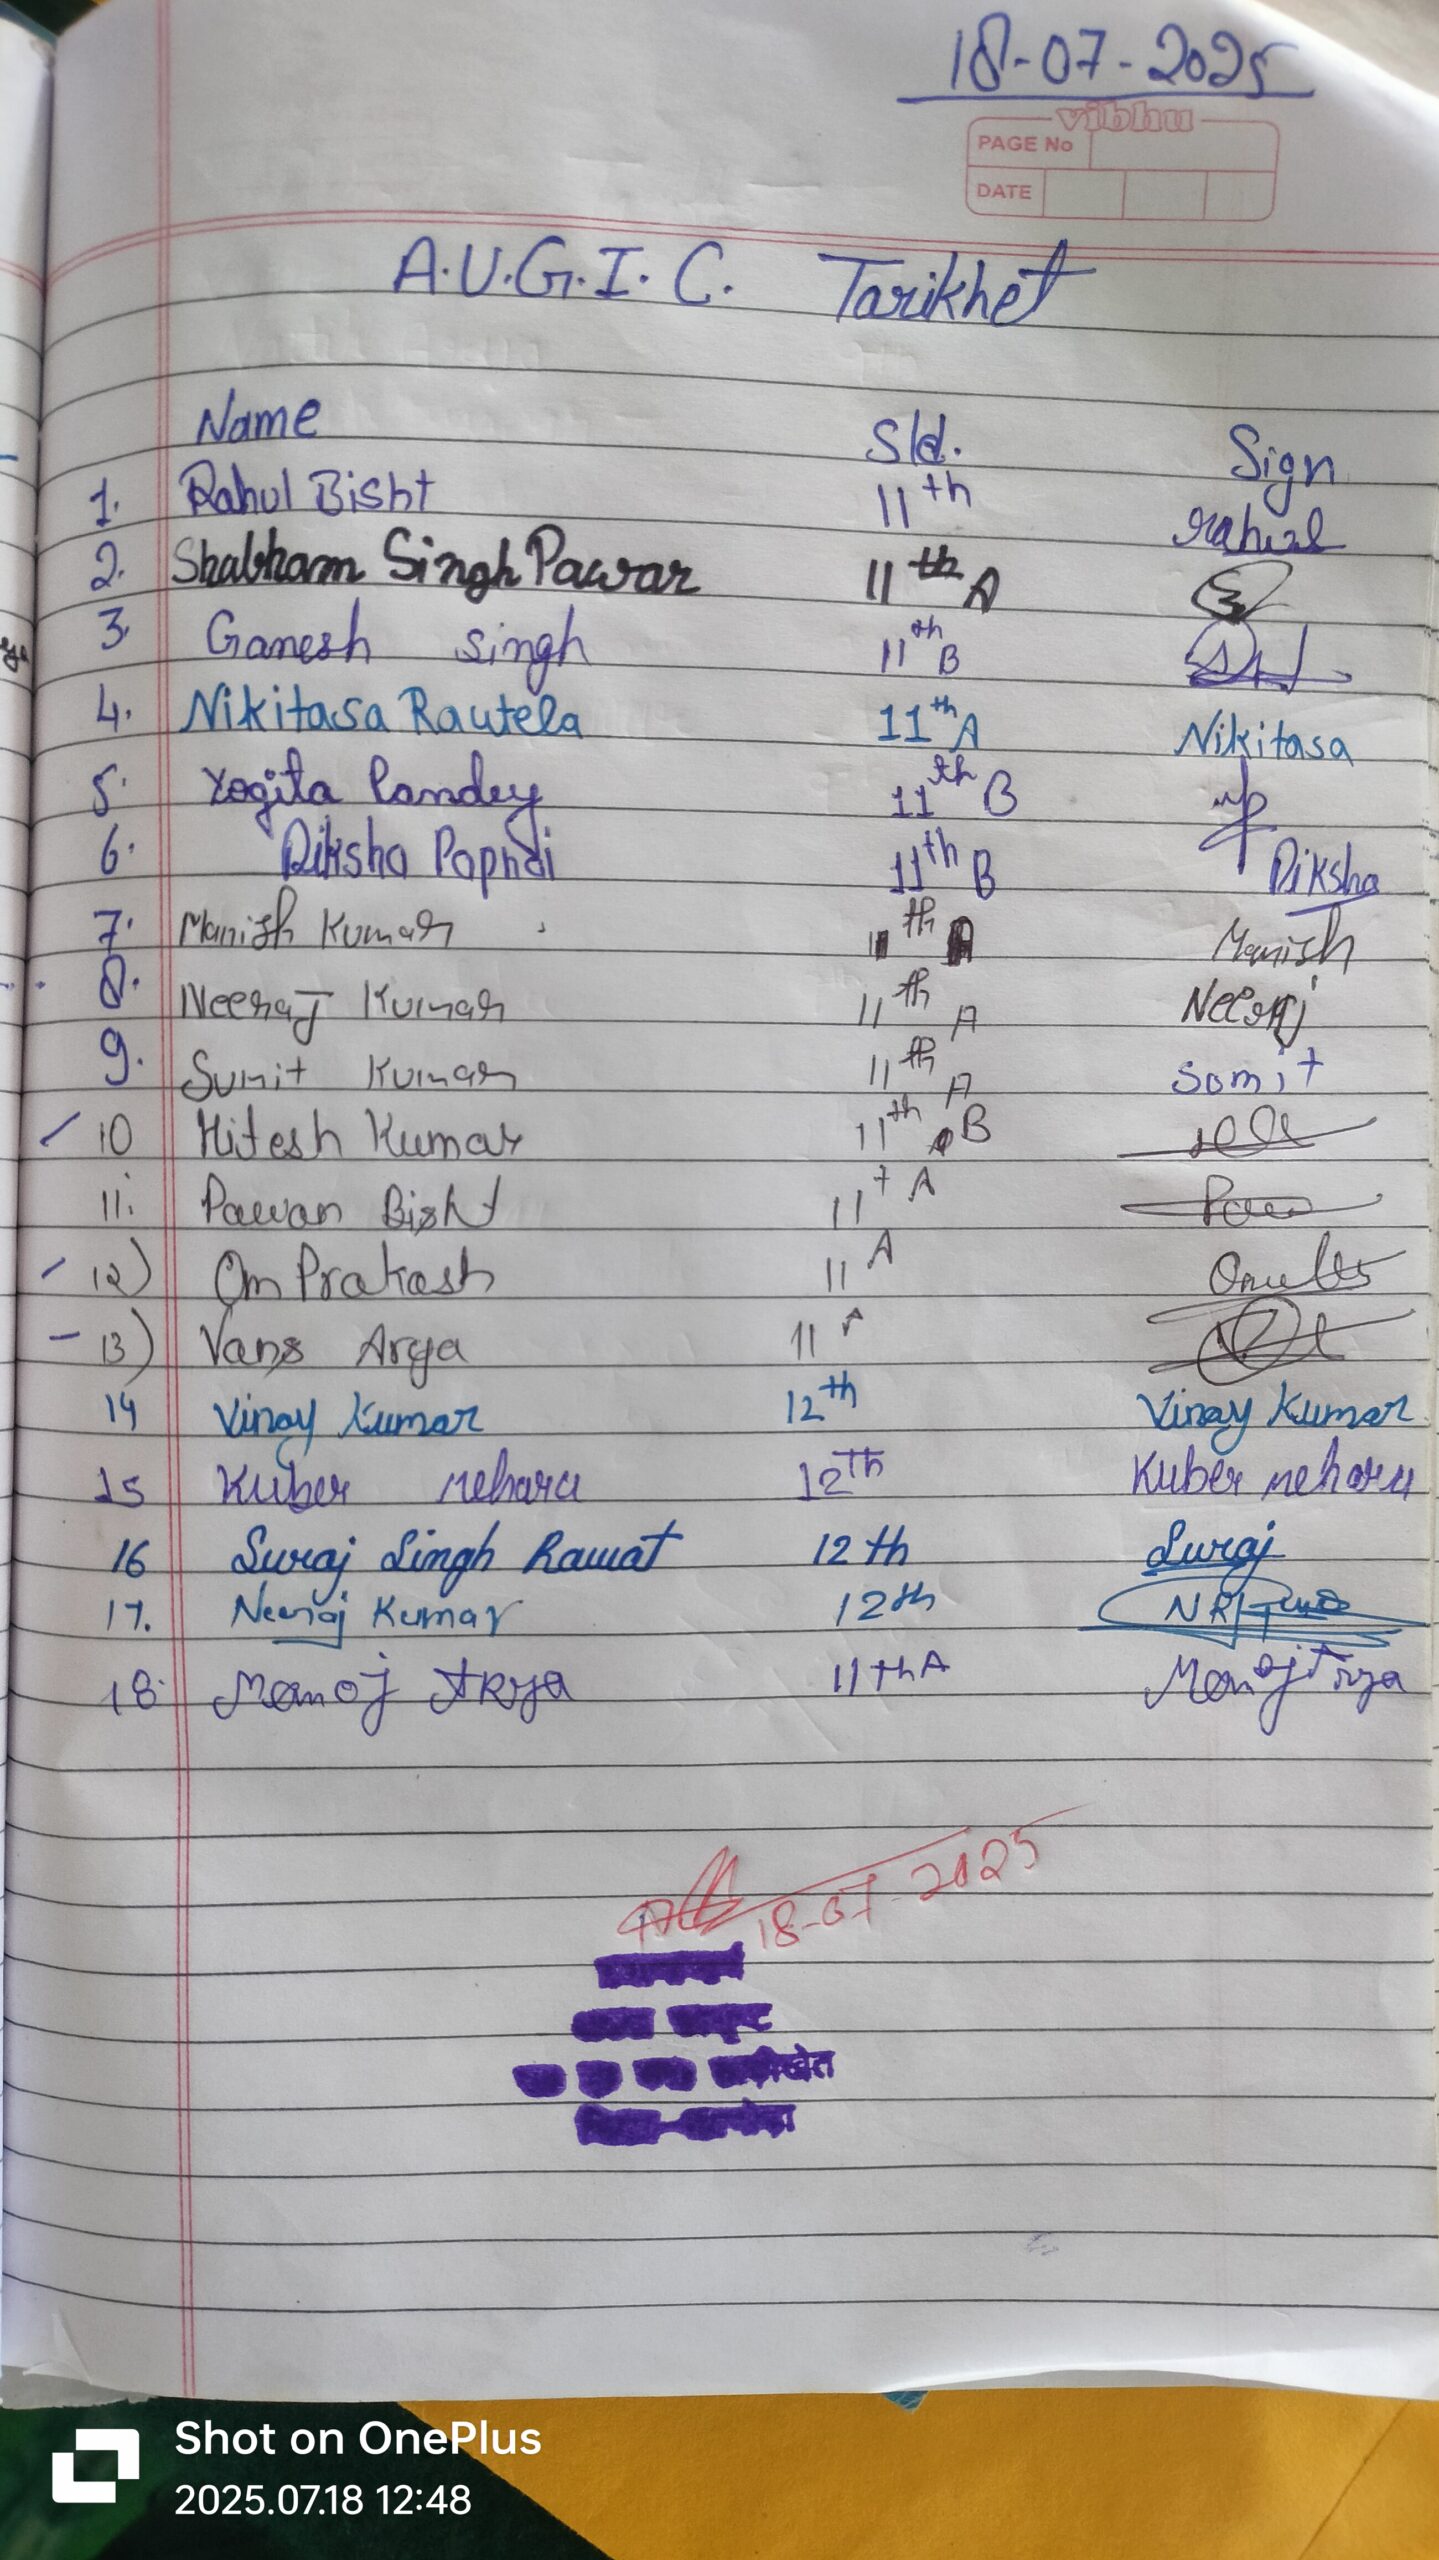 18-07-2025
vibhu
PAGE No
DATE
A.U.G.I.C. Tarikhet
Name Std. Sign
1. Rahul Bisht 11th Rahul
2. Shabham Singh Pawar 11th A
3. Ganesh Singh 11th B
4. Nikitasa Rautela 11th A Nikitasa
5. Yogita Pandey 11th B
6. Diksha Papnai 11th B Diksha
7. Manish Kumar 11th A Manish
8. Neeraj Kumar 11th A Neeraj
9. Sumit Kumar 11th A Somit
10 Hitesh Kumar 11th B
11. Pawan Bisht 11 A
12) Om Prakash 11 A
13) Vans Arya 11 A
14 Vinay Kumar 12th Vinay Kumar
15 Kuber mehara 12Th Kuber mehara
16 Suraj Singh Rawat 12th Suraj
17. Neeraj Kumar 12th
18. Manoj Arya 11th A Manoj Arya
18-07-2025
Shot on OnePlus
2025.07.18 12:48